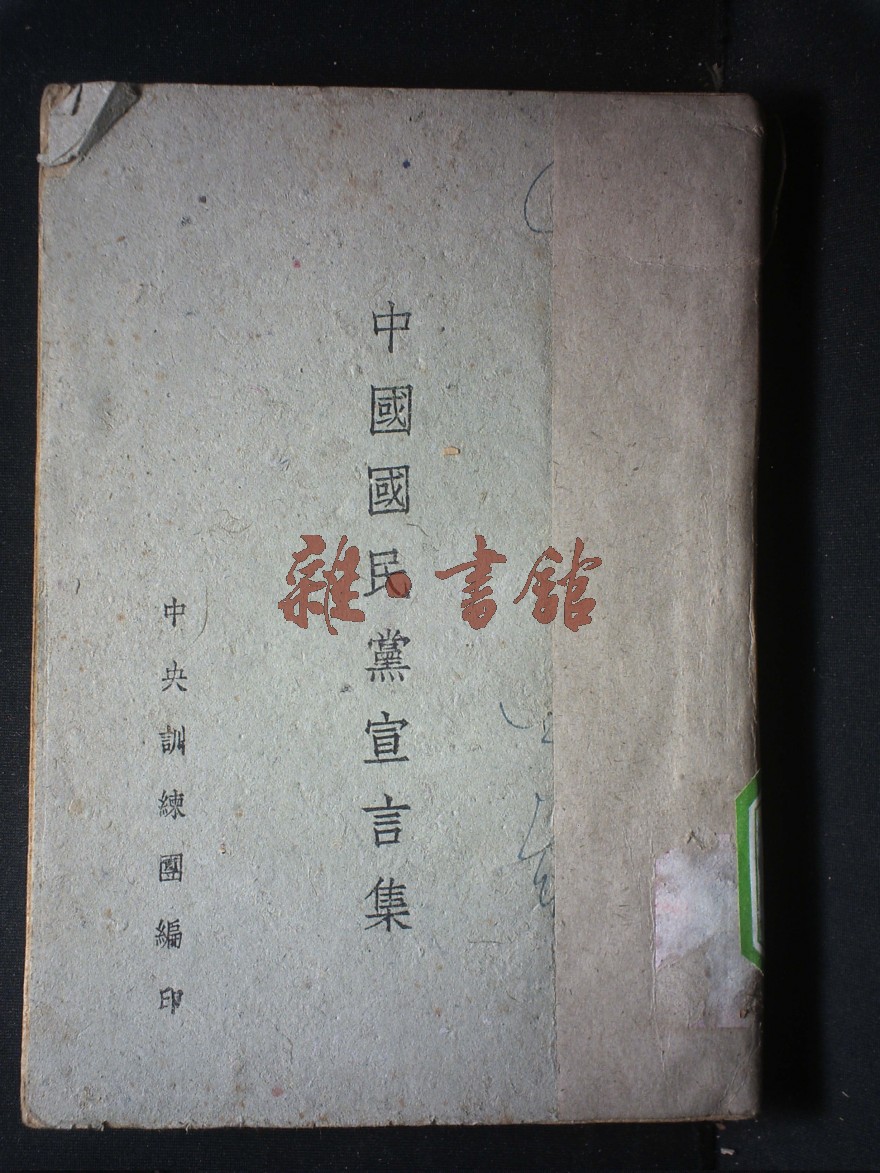 中國國民黨宣言集
中央訓練團編印
雜·書館